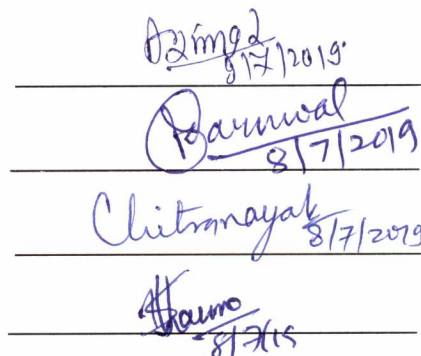 8/7/2019
Barnwal
8/7/2019
Chitranayak
8/7/2019
8/7/19